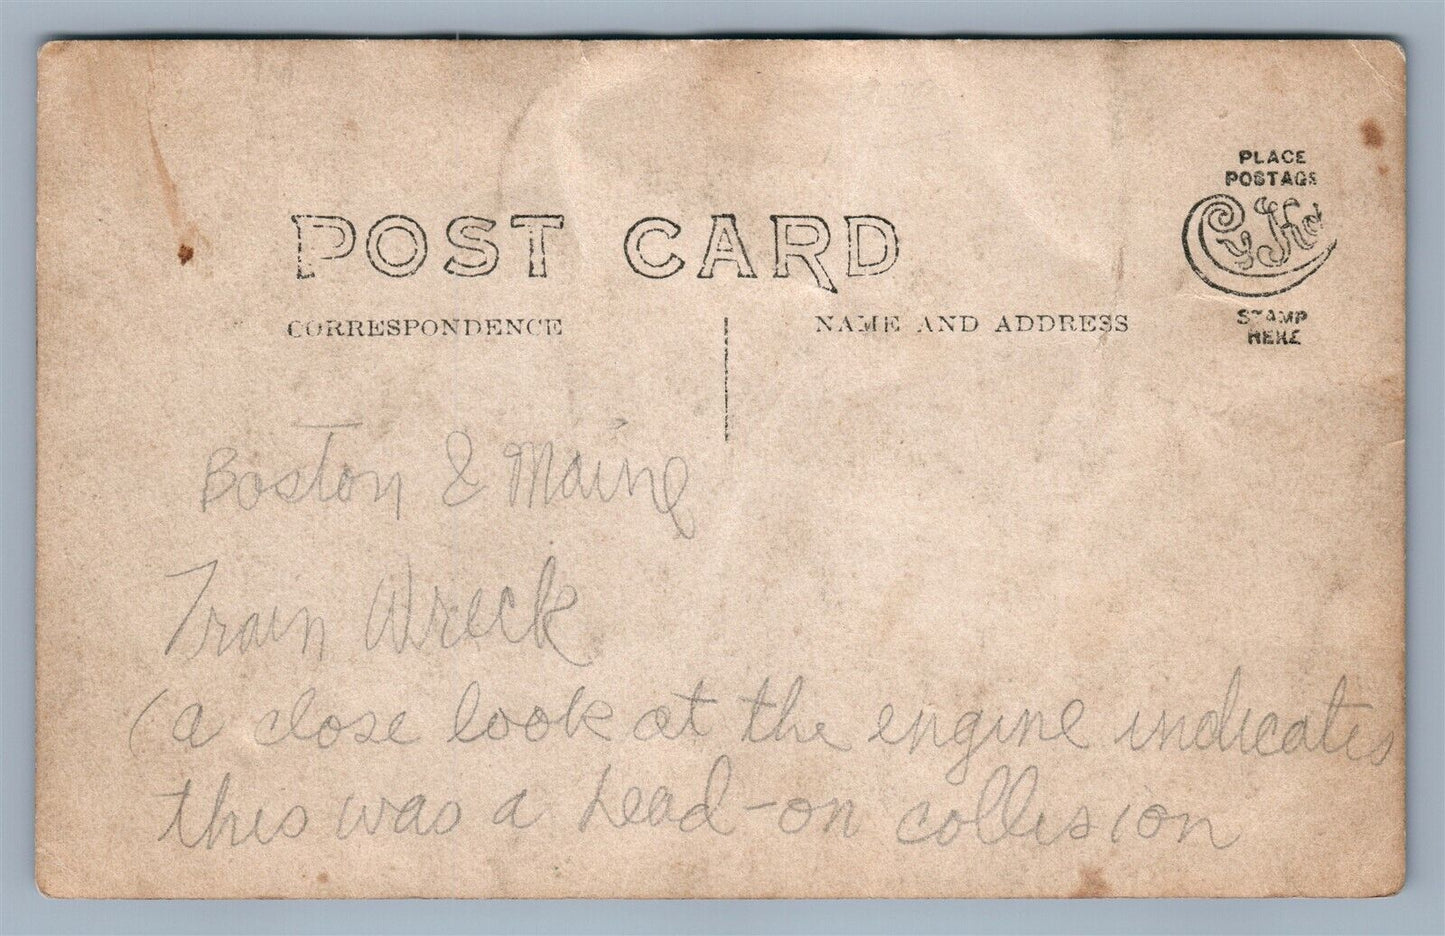 PLACE
POSTAGE
CyKo
STAMP
HERE
POST CARD
CORRESPONDENCE
NAME AND ADDRESS
Boston & Maine
Train Wreck
(a close look at the engine indicates
this was a head-on collision